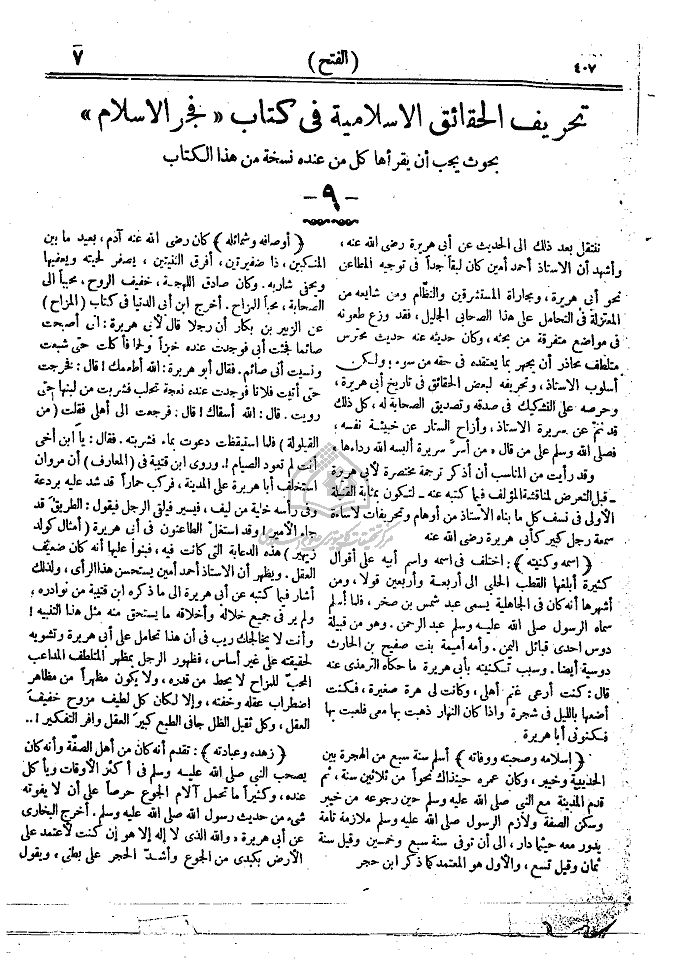 ٤٠٧
( الفتح )
٧
تحريف الحقائق الاسلامية فى كتاب « فجر الاسلام »
بحوث يجب أن يقرأها كل من عنده نسخة من هذا الكتاب
- ٩ -
ننتقل بعد ذلك الى الحديث عن أبى هريرة رضى الله عنه ،
وأشهد أن الاستاذ أحمد أمين كان لبقاً جداً فى توجيه المطاعن
نحو أبى هريرة ، وبمجاراة المستشرقين والنظّام ومن شايعه من
المعتزلة فى التحامل على هذا الصحابى الجليل ، فقد وزع طعونه
فى مواضع متفرقة من بحثه ، وكان حديثه عنه حديث محترس
متلطف يحاذر أن يجهر بما يعتقده فى حقه من سوء ؛ ولكن
أسلوب الاستاذ ، وتحريفه لبعض الحقائق فى تاريخ أبى هريرة ،
وحرصه على التشكيك فى صدقه وتصديق الصحابة له ، كل ذلك
قد نمّ عن سريرة الاستاذ ، وأزاح الستار عن خبيئة نفسه ،
فصلى الله وسلم على من قال « من أسرَّ سريرة ألبسه الله رداءها »
وقد رأيت من المناسب أن أذكر ترجمة مختصرة لأبى هريرة
- قبل التعرض لمناقشة المؤلف فيما كتبه عنه - لتكون بمثابة القنبلة
الأولى فى نسف كل ما بناه الاستاذ من أوهام وتحريفات لاساءة
سمعة رجل كبير كأبى هريرة رضى الله عنه
( اسمه وكنيته ) : اختلف فى اسمه واسم أبيه على أقوال
كثيرة أبلغها القطب الحلبى الى أربعة وأربعين قولا ، ومن
أشهرها أنه كان فى الجاهلية يسمى عبد شمس بن صخر ، فلما أسلم
سماه الرسول صلى الله عليه وسلم عبد الرحمن . وهو من قبيلة
دوس احدى قبائل اليمن . وأمه أميمة بنت صفيح بن الحارث
دوسية أيضا . وسبب تكنيته بأبى هريرة ما حكاه الترمذى عنه
قال : كنت أرعى غنم أهلى ، وكانت لى هرة صغيرة ، فكنت
أضعها بالليل فى شجرة واذا كان النهار ذهبت بها معى فلعبت بها
فكنونى أبا هريرة
( اسلامه وصحبته ووفاته ) أسلم سنة سبع من الهجرة بين
الحديبية وخيبر ، وكان عمره حينذاك نحواً من ثلاثين سنة ، ثم
قدم المدينة مع النبى صلى الله عليه وسلم حين رجوعه من خيبر
وسكن الصفة ولازم الرسول صلى الله عليه وسلم ملازمة تامة
يدور معه حيثما دار ، الى أن توفى سنة سبع وخمسين وقيل سنة
ثمان وقيل تسع ، والأول هو المعتمد كما ذكر ابن حجر
( أوصافه وشمائله ) كان رضى الله عنه آدم ، بعيد ما بين
المنكبين ، ذا ضفيرتين ، أفرق الثنيتين ، يصفر لحيته ويعفيها
ويحفى شاربه . وكان صادق اللهجة ، خفيف الروح ، محبباً الى
الصحابة ، محباً للمزاح . أخرج ابن أبى الدنيا فى كتاب ( المزاح )
عن الزبير بن بكار أن رجلا قال لأبى هريرة : انى أصبحت
صائما فجئت أبى فوجدت عنده خبزاً ولحماً فأكلت حتى شبعت
ونسيت أنى صائم . فقال أبو هريرة : الله أطعمك ! قال : فخرجت
حتى أتيت فلانا فوجدت عنده نعجة تحلب فشربت من لبنها حتى
رويت . قال : الله أسقاك ! قال : فرجعت الى أهلى فقلت ( من
القيلولة ) فلما استيقظت دعوت بماء فشربته . فقال : يا ابن أخى
أنت لم تعود الصيام ! . وروى ابن قتيبة فى ( المعارف ) أن مروان
استخلف أبا هريرة على المدينة ، فركب حماراً قد شد عليه بردعة
وفى رأسه خلبة من ليف ، فيسير فيلقى الرجل فيقول : الطريقَ قد
جاء الأمير ! وقد استغل الطاعنون فى أبى هريرة ( أمثال كولد
زيهير ) هذه الدعابة التى كانت فيه ، فبنوا عليها أنه كان ضعيف
العقل . ويظهر أن الاستاذ أحمد أمين يستحسن هذا الرأى ، ولذلك
أشار فيما كتبه عن أبى هريرة الى ما ذكره ابن قتيبة من نوادره ،
ولم ير فى جميع خلاله وأخلاقه ما يستحق منه مثل هذا التنبيه !
وأنت لا يخالجك ريب فى أن هذا تحامل على أبى هريرة وتشويه
لحقيقته على غير أساس ، فظهور الرجل بمظهر المتلطف المداعب
المحبّ للمزاح لا يحط من قدره ، ولا يكون مظهراً من مظاهر
اضطراب عقله وخفته ، وإلا لكان كل لطيف مزوح خفيفَ
العقل ، وكل ثقيل الظل جافى الطبع كبيرَ العقل وافر التفكير ! ..
( زهده وعبادته ) : تقدم أنه كان من أهل الصفّة وأنه كان
يصحب النبى صلى الله عليه وسلم فى أكثر الأوقات ويأكل
عنده ، وكثيراً ما تحمل آلام الجوع حرصاً على أن لا يفوته
شىء من حديث رسول الله صلى الله عليه وسلم . أخرج البخارى
عن أبى هريرة « والله الذى لا إله إلا هو إن كنت لأعتمد على
الأرض بكبدى من الجوع وأشدّ الحجر على بطنى ، ويقول